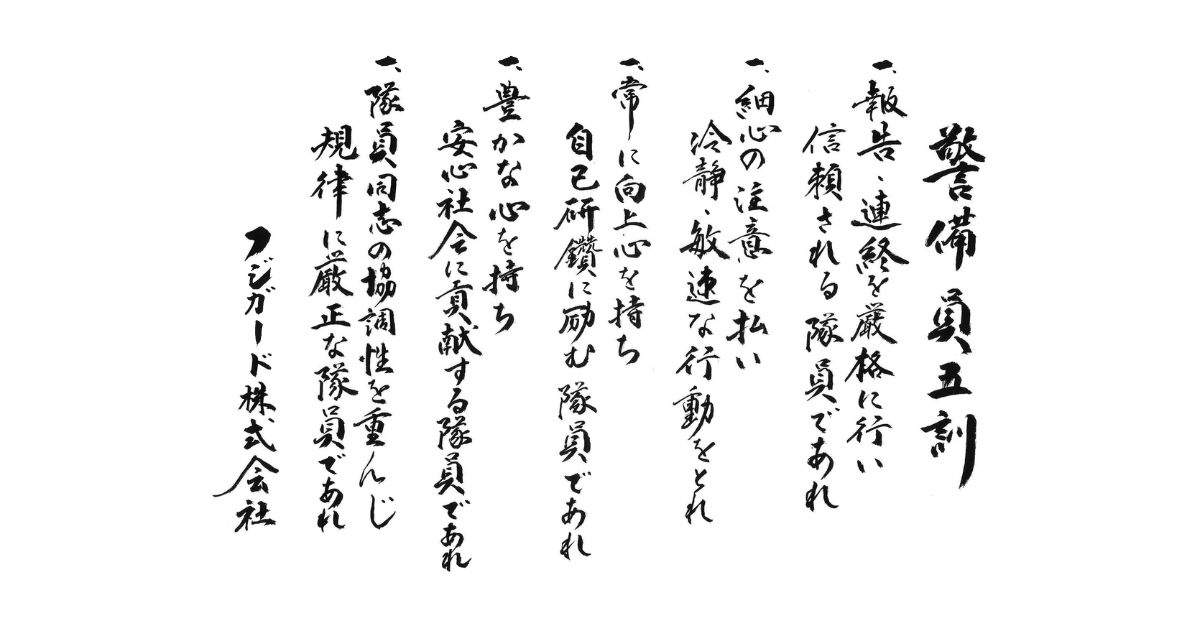 警備員五訓
一、報告、連終を厳格に行い
信頼される隊員であれ
一、細心の注意を払い
冷静、敏速な行動をとれ
一、常に向上心を持ち
自己研鑽に励む隊員であれ
一、豊かな心を持ち
安心社会に貢献する隊員であれ
一、隊員同志の協調性を重んじ
規律に厳正な隊員であれ
フジガード株式会社